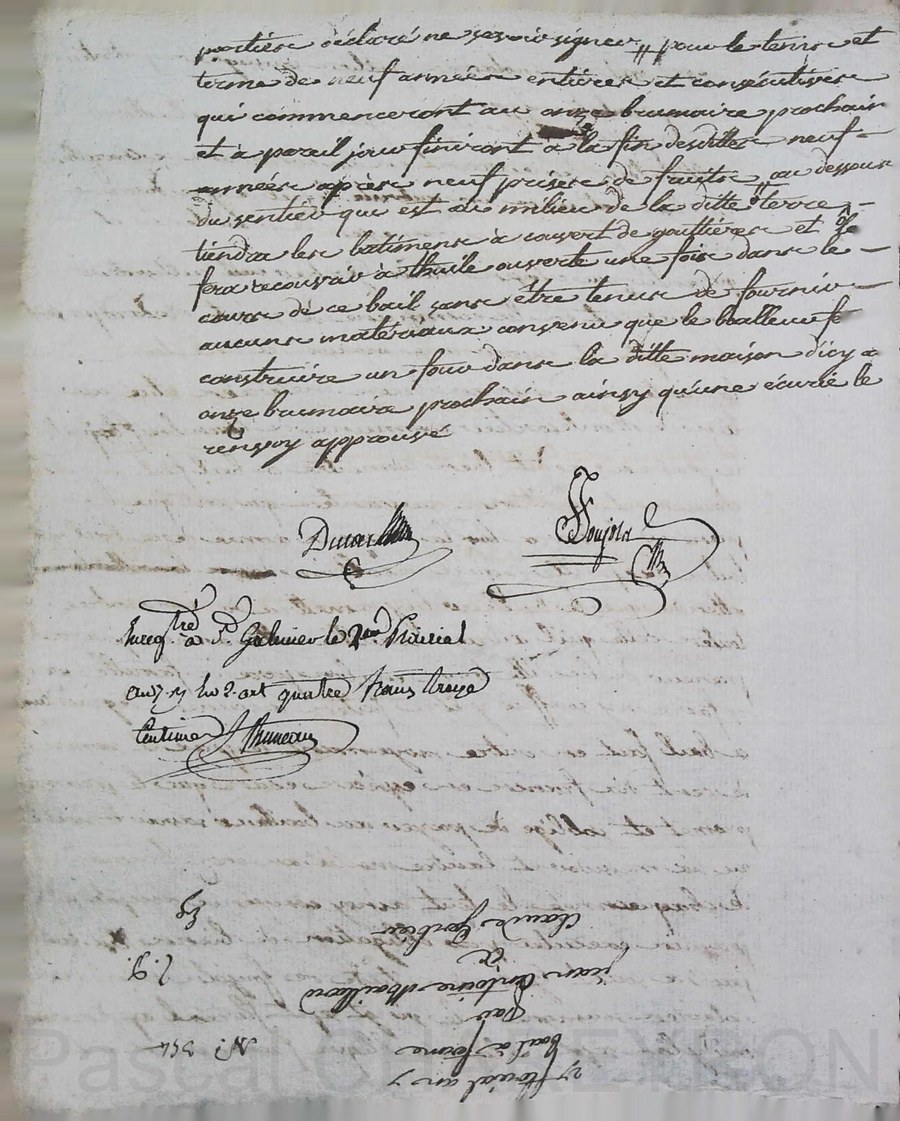 parties déclaré ne savoir signer // pour le tems et
terme de neuf années entières et consécutives
qui commenceront au onze brumaire prochain
et à pareil jour finiront à la fin desdittes neuf
années après neuf prises de fruits // au dessous
du sentier qui est au milieu de la ditte terre
tiendra les batimens à couvert de gouttières et
fera recouvrir à thuile ouverte une fois dans le
cours de ce bail sans être tenus de fournir
aucuns matériaux convenu que le bailleur fe
construire un four dans la ditte maison d'icy a
onze brumaire prochain ainsy qu'une écurie le
renvoy approuvé
Enregtré à St Galmier le 2 Prairial
an 7 quatre francs treize
Centimes
27 floréal an 7
bail à ferme
par
jean Antoine Maillard
a
Claude
N.° 254
Pascal